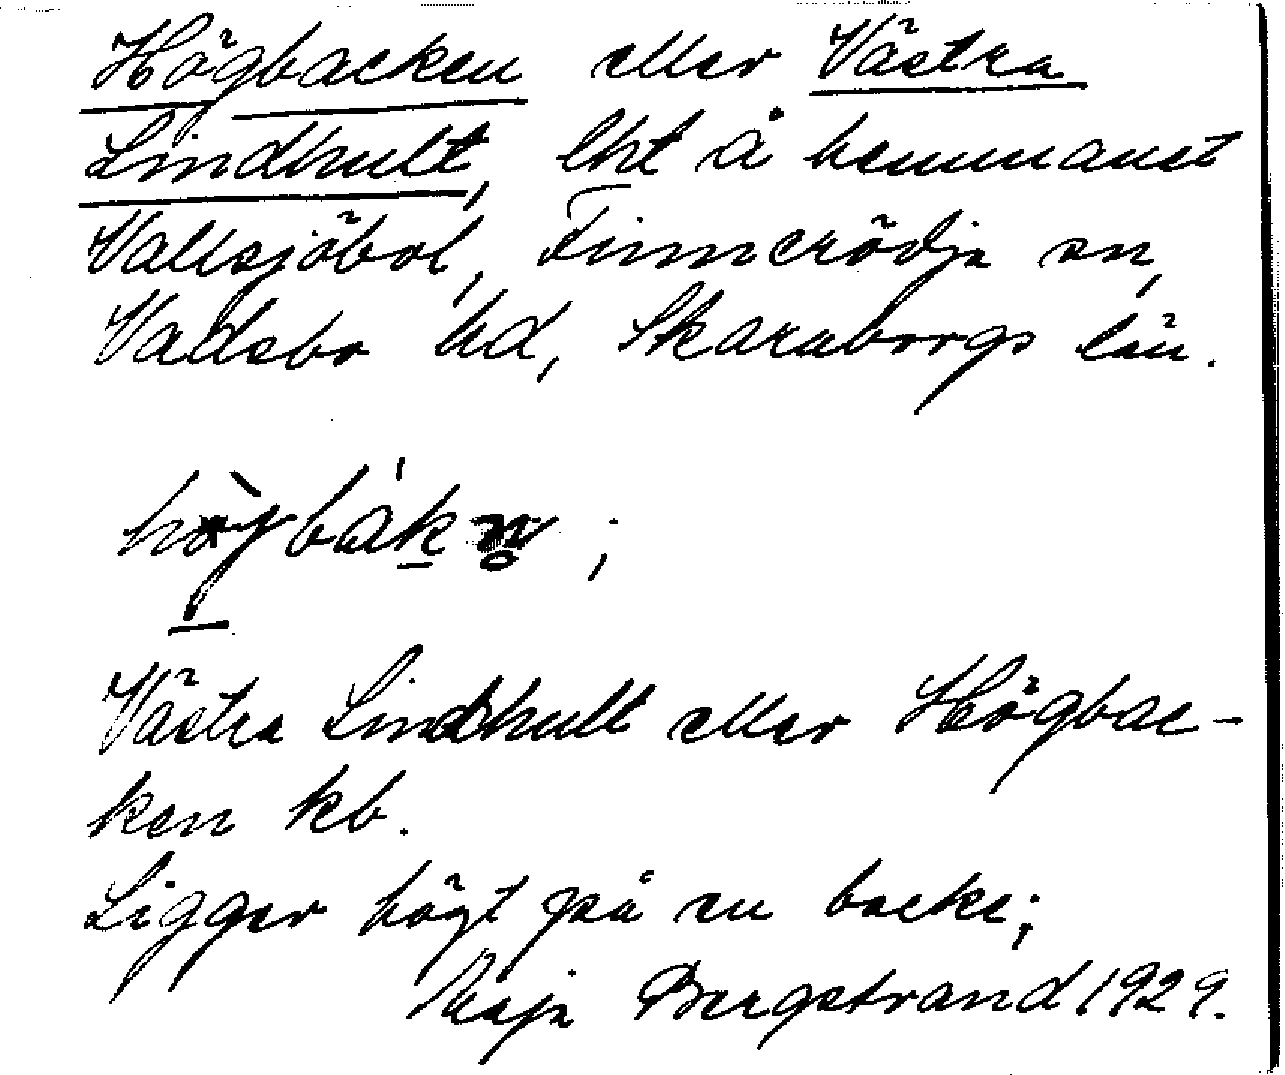 Högbacken eller Västra
Lindhult, lht å hemmanet
Vallsjöbol, Finnerödja sn,
Vadsbo hd, Skaraborgs län.
Västra Lindhult eller Högbac-
ken kb.
Ligger högt på en backe;
Maja Bergstrand 1929.